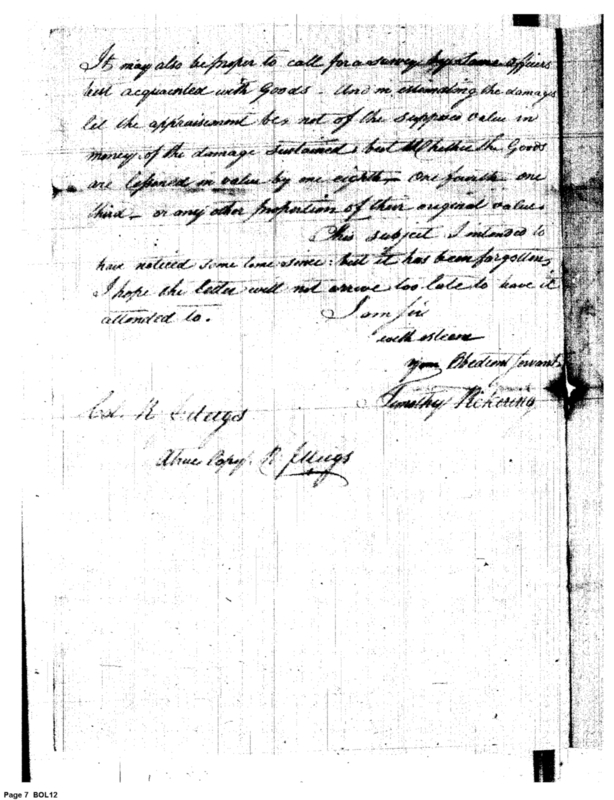 It may also be proper to call for a survey by some officers
best acquainted with Goods - And in estimating the damages
let the appraisement be, not of the supposed value in
money, of the damage sustained; but Whether the Goods
are lessened in value by one eighth - one fourth - one
third - or any other proportion of their original value.
This subject I intended to
have noticed some time since: but it has been forgotten,
I hope the letter will not arrive too late to have it
attended to.
I am Sir
with esteem
your Obedient Servant
Timothy Pickering
R J Meigs
A true Copy. R J Meigs
Page 7 BOL12